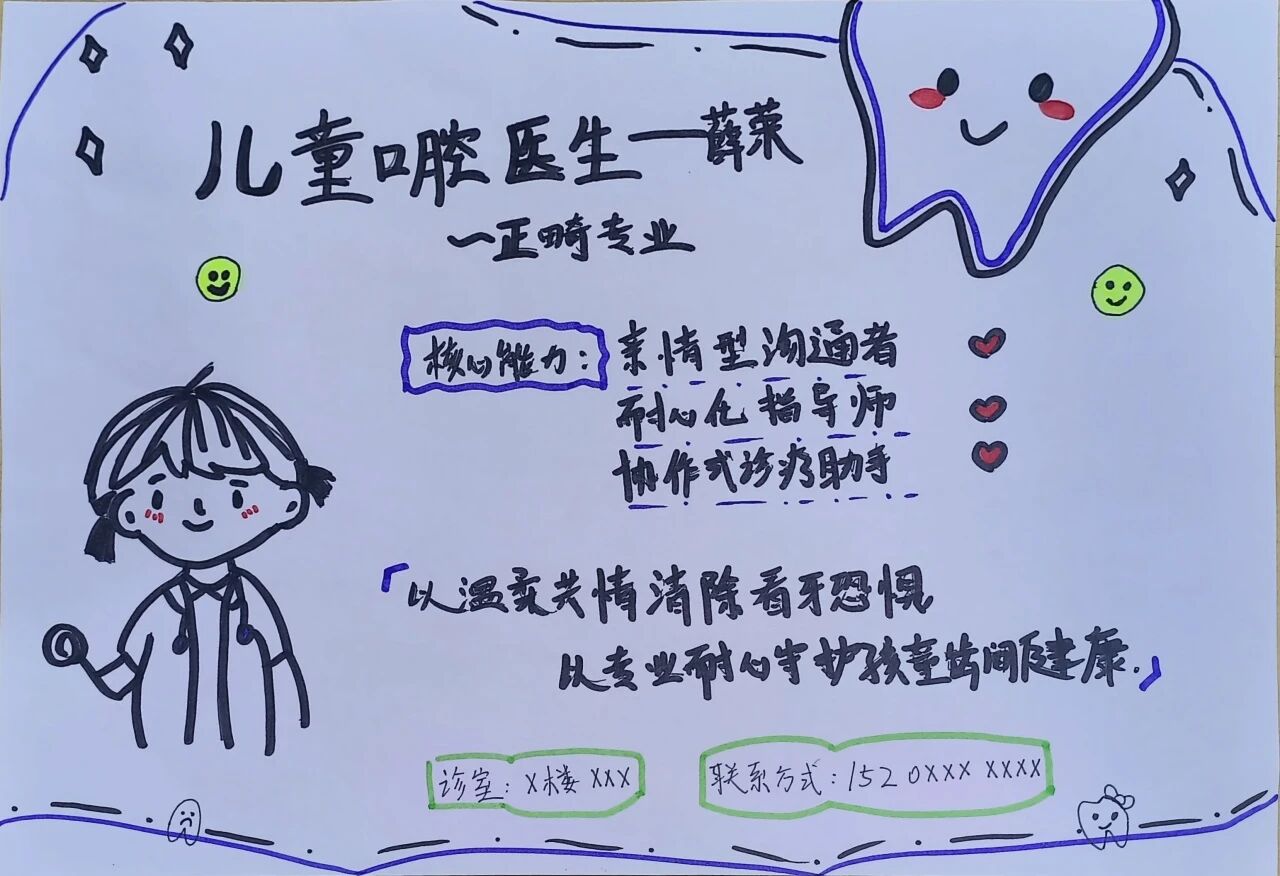 儿童口腔医生——薛莱
一正畸专业
核心能力：亲情型沟通者
耐心化指导师
协作式诊疗助手
「以温柔共情清除看牙恐惧
以专业耐心守护孩童齿间健康.」
诊室：X楼 XXX
联系方式：1520XXX XXXX